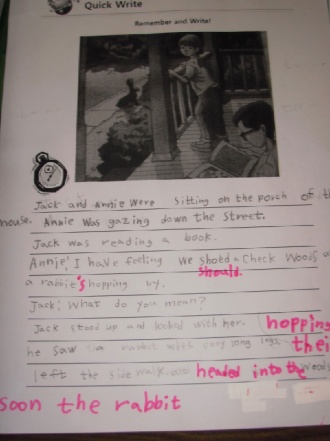 Quick Write
Remember and Write!
Jack and Annie were sitting on the porch of th
house. Annie was gazing down the street.
Jack was reading a book.
Annie: I have feeling we shold Check Woods a
should.
a rabbit's hopping by.
Jack: What do you mean?
Jack stood up and looked with her. hopping
he saw a rabbit with very long legs thei
left the side walk headed into the Woods
soon the rabbit